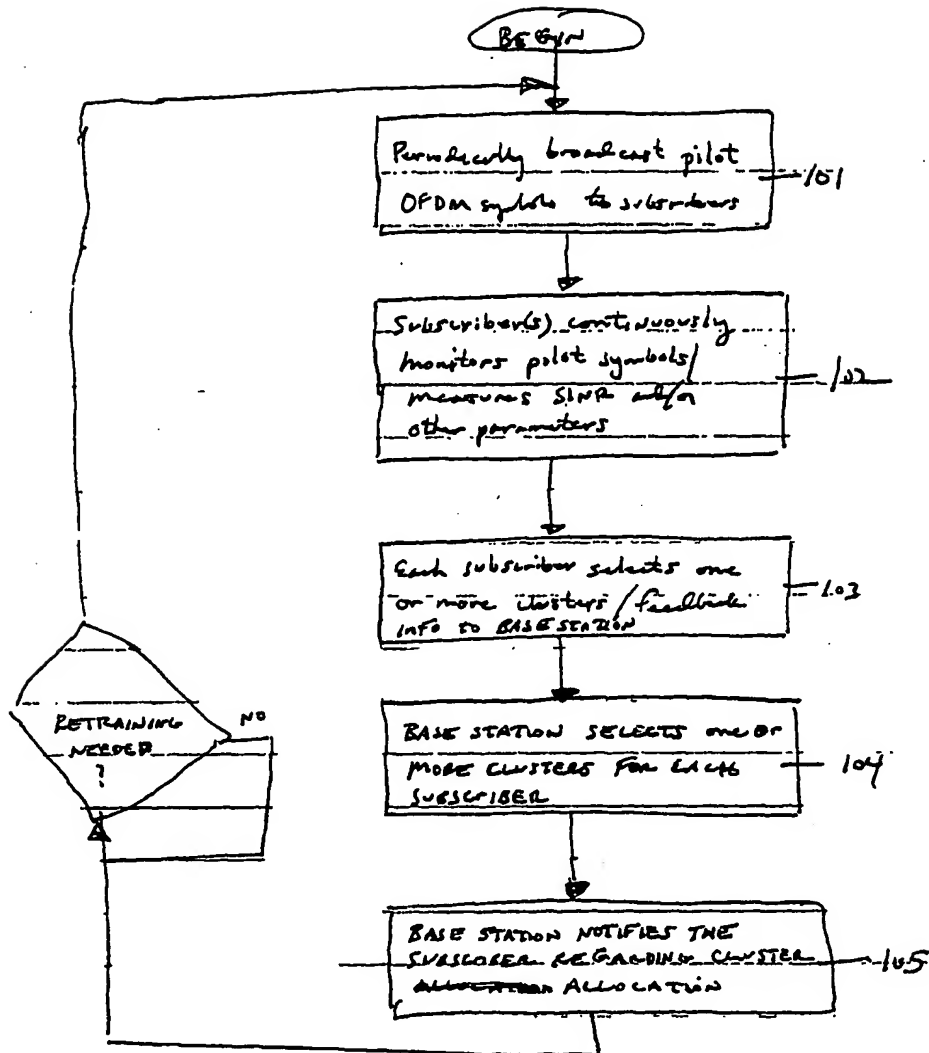 BEGIN
Periodically broadcast pilot
OFDM symbols to subscribers
101
Subscriber(s) continuously
monitors pilot symbols/
measures SINR and/or
other parameters
102
Each subscriber selects one
or more clusters/feedback
info to BASE STATION
103
RETRAINING
NEEDED
?
NO
BASE STATION SELECTS one or
MORE CLUSTERS FOR EACH
SUBSCRIBER
104
BASE STATION NOTIFIES THE
SUBSCRIBER REGARDING CLUSTER
ALLOCATION
105